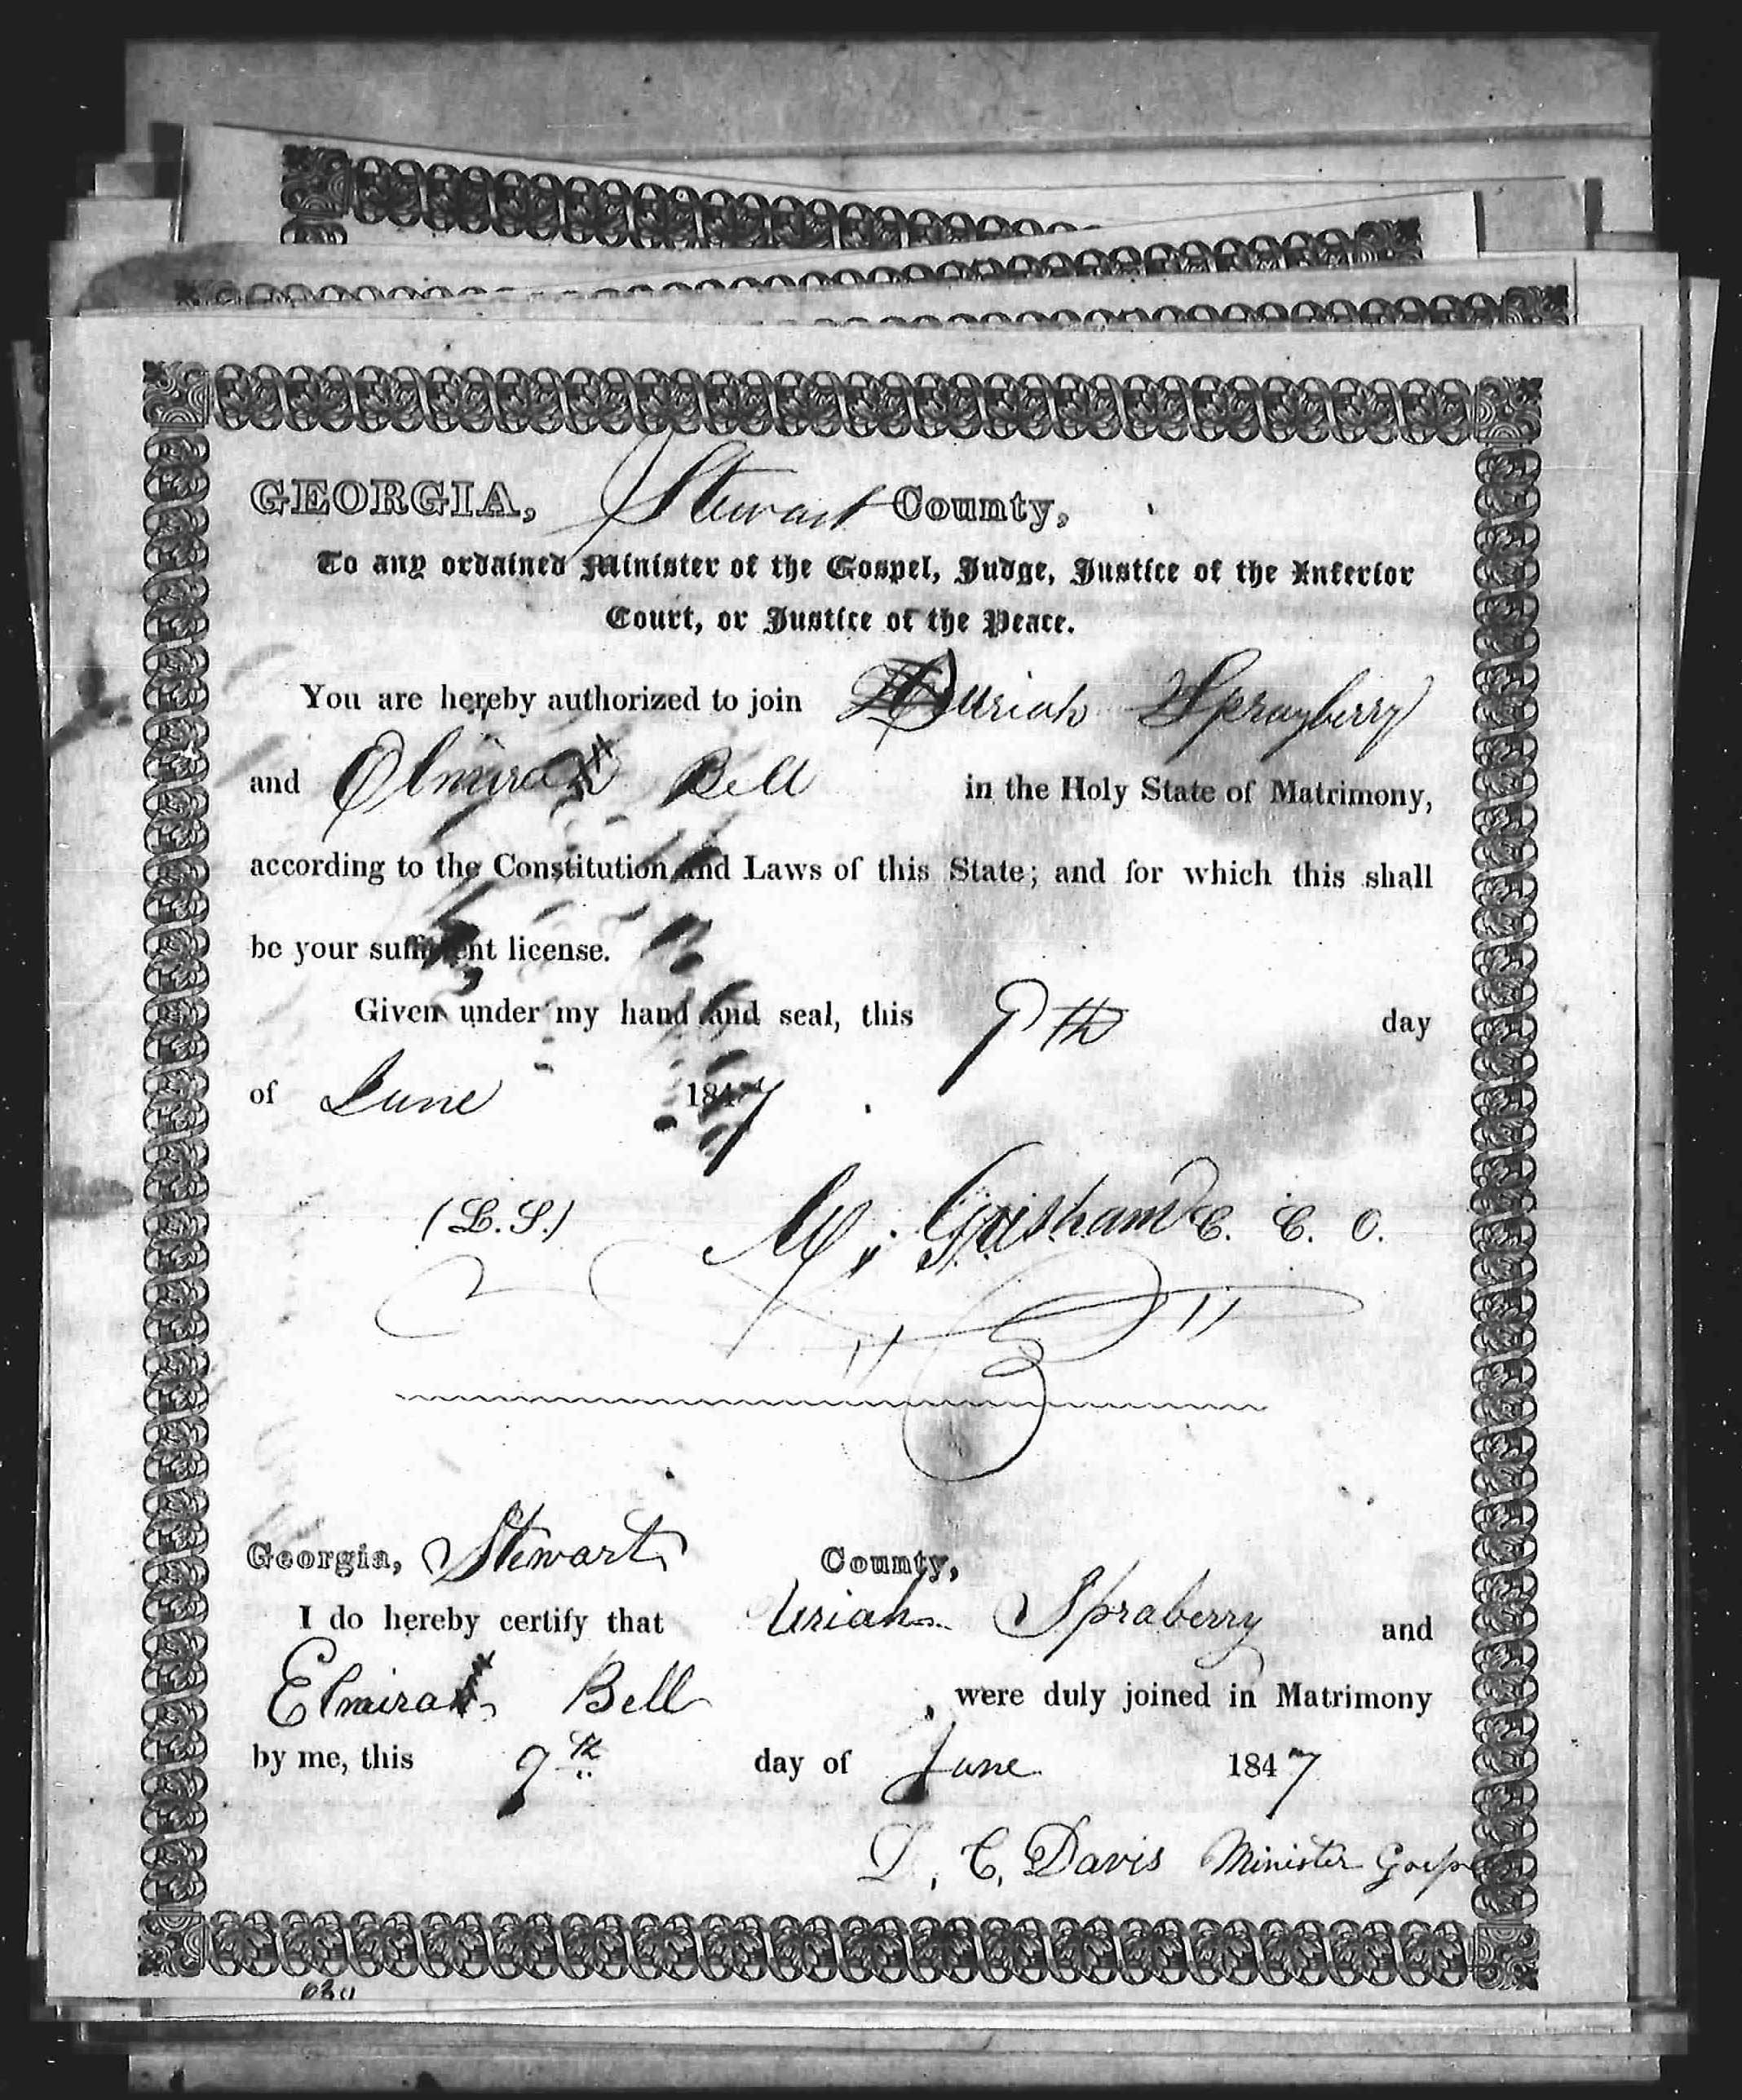 GEORGIA, Stewart County,
To any ordained Minister of the Gospel, Judge, Justice of the Inferior
Court, or Justice of the Peace.
You are hereby authorized to join Uriah Sprayberry
and Elmira Bell in the Holy State of Matrimony,
according to the Constitution and Laws of this State; and for which this shall
be your sufficient license.
Given under my hand and seal, this 9th day
of June 1847
(L.S.) M. Grisham C. C. O.
Georgia, Stewart County,
I do hereby certify that Uriah Spraberry and
Elmira Bell, were duly joined in Matrimony
by me, this 9th day of June 1847
C. Davis Minister Gosp